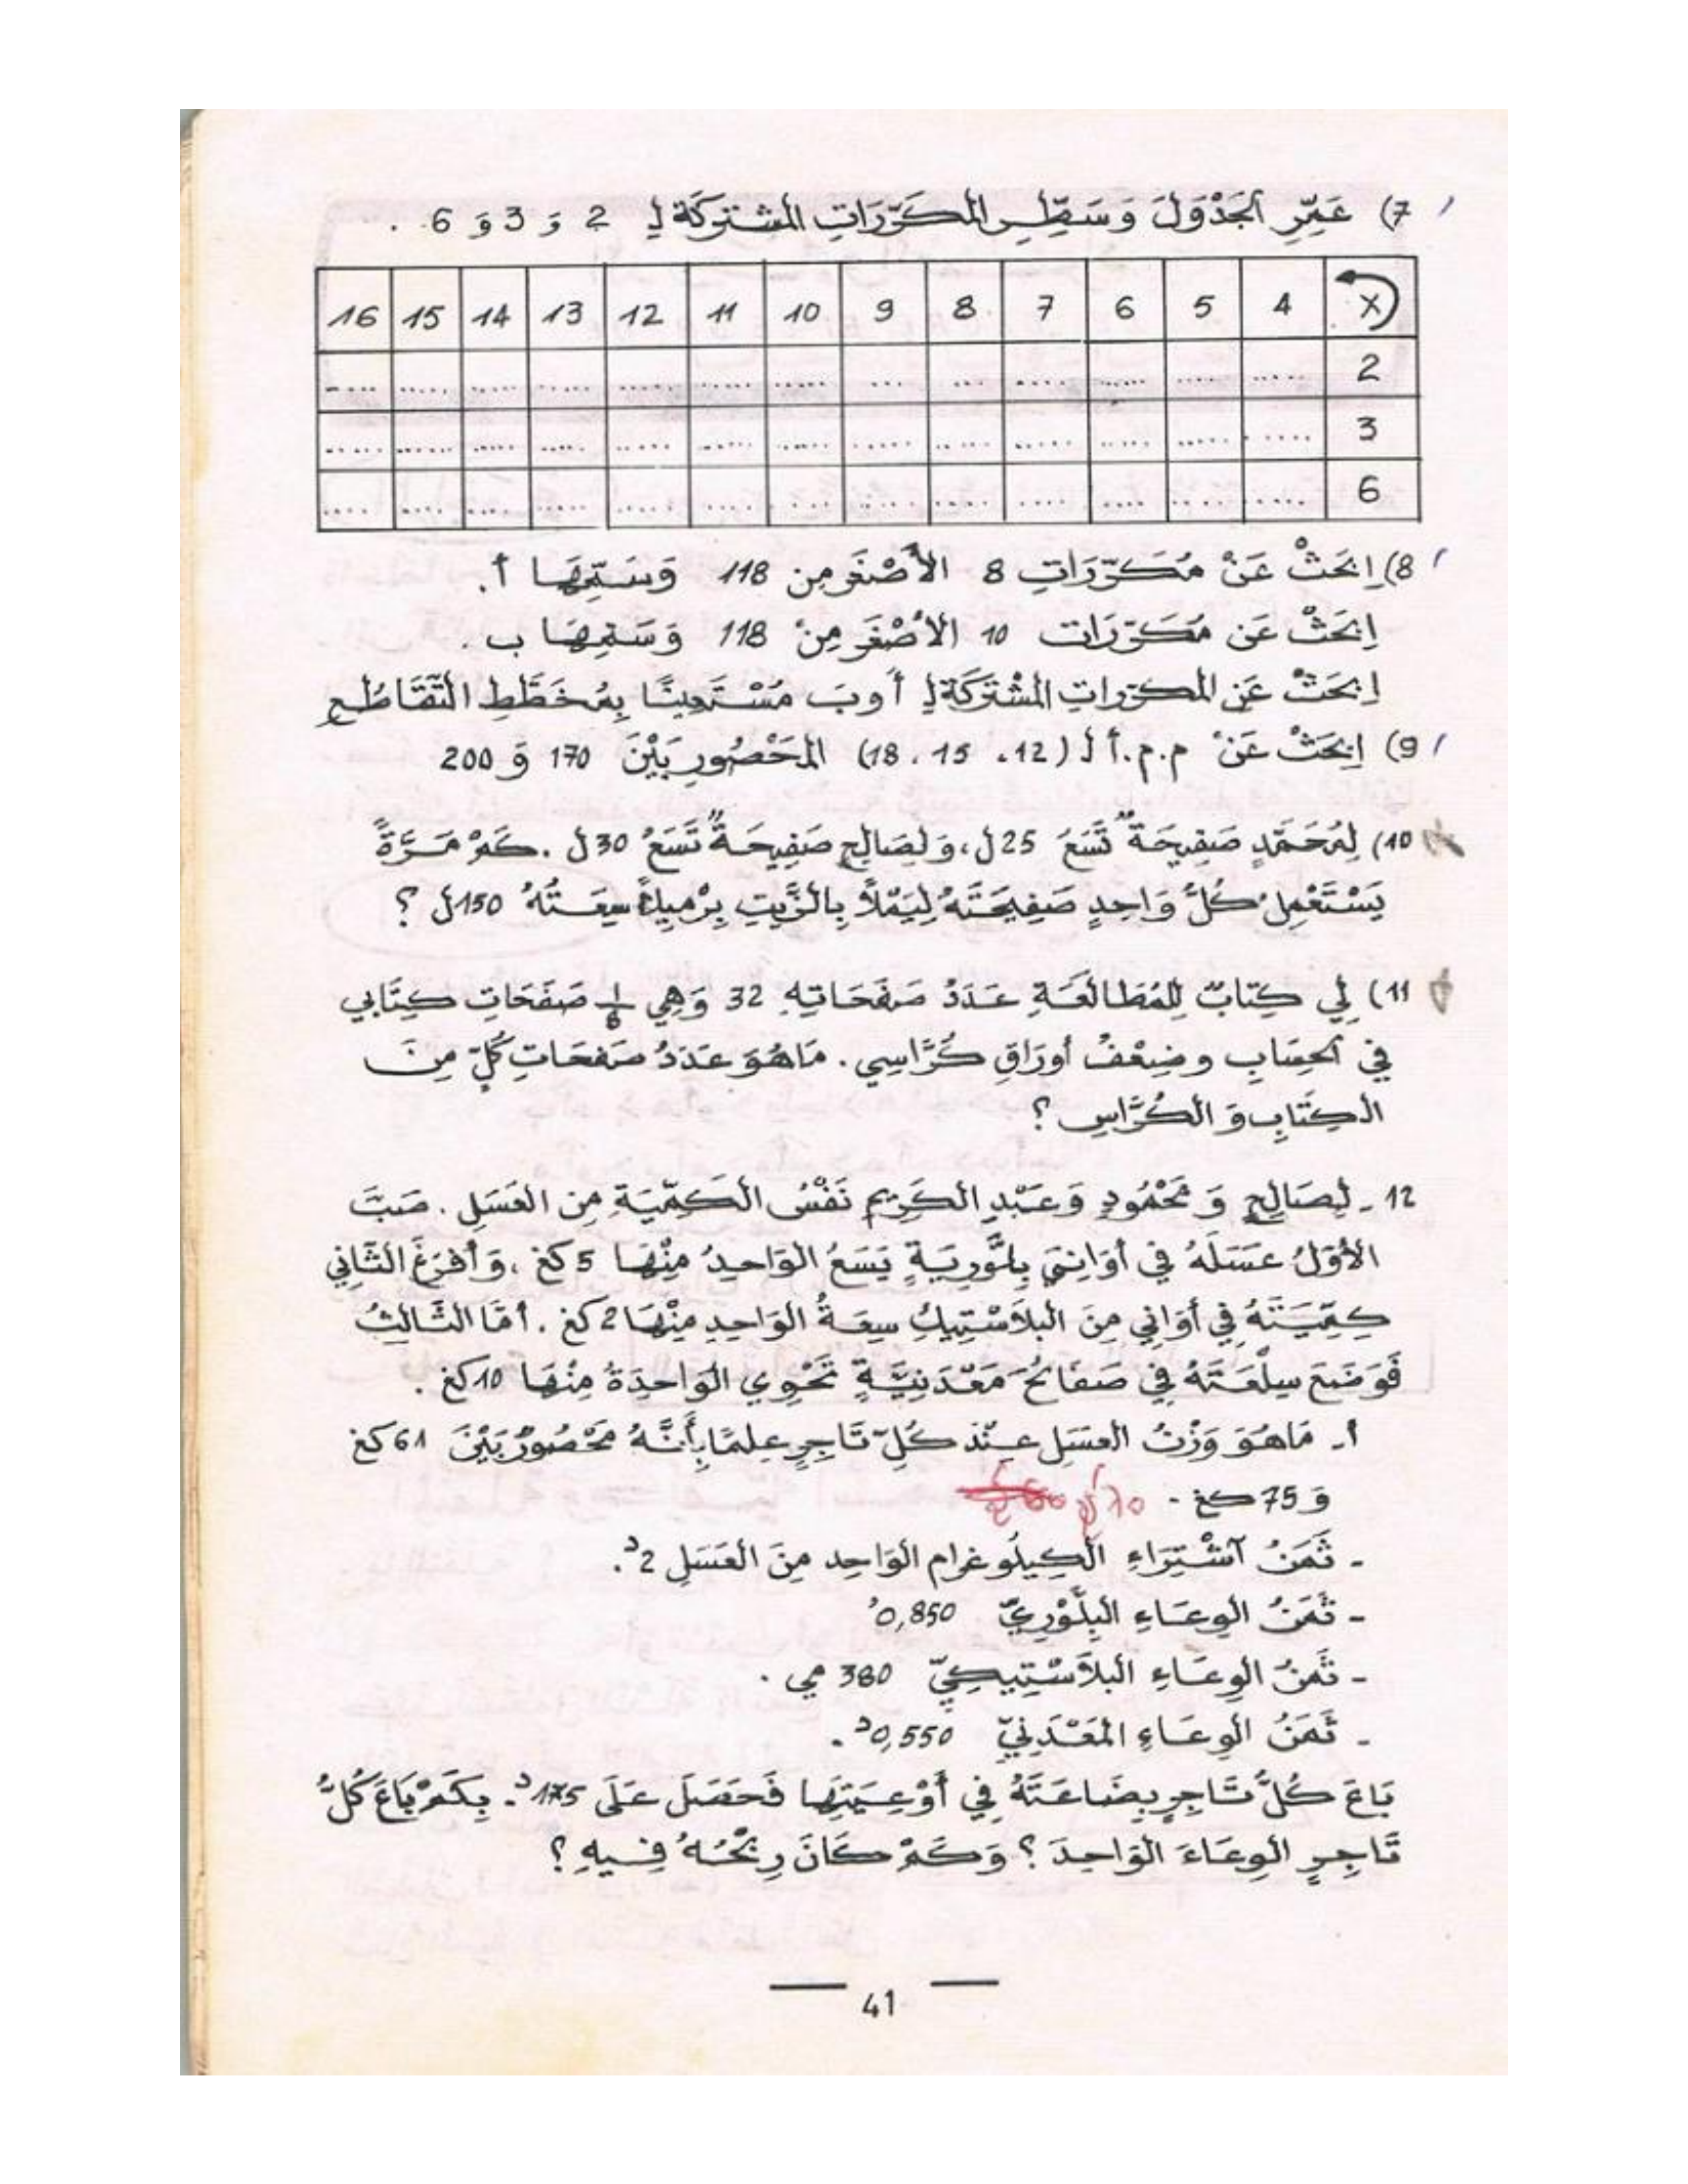 7) عَمِّرِ الجَدْوَلَ وَسَطِّرِ المكَرَّرَاتِ المشتركَة لِـ 2 وَ 3 وَ 6 .
× 4 5 6 7 8 9 10 11 12 13 14 15 16
2 ..... ..... ..... ..... ... ... ..... ..... ..... ..... ..... ..... .....
3 ..... ..... ..... ..... ..... ..... ..... ..... ..... ..... ..... ..... .....
6 ..... ..... ..... ..... ..... ..... ..... ..... ..... ..... ..... ..... .....
8) اِبْحَثْ عَنْ مُكَرَّرَاتِ 8 الأَصْغَر مِن 118 وَسَمِّهَا أ.
اِبْحَثْ عَن مُكَرَّرَات 10 الأَصْغَر مِنْ 118 وَسَمِّهَا ب .
اِبْحَثْ عَنِ المكرّراتِ المشْتَرَكَة لِـ أ وبَ مُسْتَعِينًا بِمُخَطَّطِ التَّقَاطُعِ
9) اِبْحَثْ عَنْ م.م.أ لـ (12 . 15 . 18) المَحْصُورِ بَيْنَ 170 وَ 200
10) لِمُحَمَّدٍ صَفِيحَةٌ تَسَعُ 25ل، وَلِصَالِحٍ صَفِيحَةٌ تَسَعُ 30ل . كَمْ مَرَّةً
يَسْتَعْمِلُ كُلُّ وَاحِدٍ صَفِيحَتَهُ لِيَمْلَأَ بِالزَّيتِ بِرْمِيلاً سِعَتُهُ 150ل ؟
11) لِي كِتَابٌ لِلمُطَالَعَةِ عَدَدُ صَفَحَاتِهِ 32 وَهِي صَفَحَاتِ كِتَابي
في الحِسَابِ وضِعْفُ أورَاقِ كُرَّاسِي . مَاهُوَ عَدَدُ صَفحَاتِ كُلٍّ مِنَ
الكِتَابِ وَ الكُرَّاسِ ؟
12 ـ لِصَالِحٍ وَ مَحْمُودٍ وَعَبْدِ الكَرِيمِ نَفْسُ الكَمِّيَةِ مِن العَسَلِ . صَبَّ
الأَوَّلُ عَسَلَهُ في أوَانِي بِلَّوْرِيَةٍ يَسَعُ الوَاحِدُ مِنْهَا 5 كغ ، وَأفْرَغَ الثَّانِي
كِمِّيَتَهُ في أوَاني مِنَ البلاَسْتِيكِ سِعَةُ الوَاحِدِ مِنْهَا 2 كغ . أمَّا الثَّالِثُ
فَوَضَعَ سِلْعَتَهُ في صَفَائحَ مَعْدَنِيَّةٍ تَحْوِي الوَاحِدَةُ مِنْهَا 10 كغ .
أ. مَاهُوَ وَزْنُ العسَلِ عِنْدَ كُلِّ تَاجِرٍ عِلمًا بِأَنَّهُ مَحْصُورٌ بَيْنَ 61 كغ
وَ 75 كغ -
- ثَمَنُ اَشْتِرَاءِ الكِيلُوغرام الوَاحِد مِنَ العَسَلِ 2د.
- ثَمَنُ الوِعَاءِ البِلَّوْرِيّ 0,850د
- ثَمَنُ الوِعَاءِ البلاَسْتِيكِيّ 380 مي .
- ثَمَنُ الوِعَاءِ المَعْدَنِيّ 0,550د .
بَاعَ كُلُّ تَاجِرٍ بِضَاعَتَهُ فِي أَوْعِيَتِهَا فَحَصَلَ عَلَى 175د . بِكَمْ بَاعَ كُلُّ
تَاجِرٍ الوِعَاءَ الوَاحِدَ ؟ وَكَمْ كَانَ رِبْحُهُ فِيهِ ؟
41